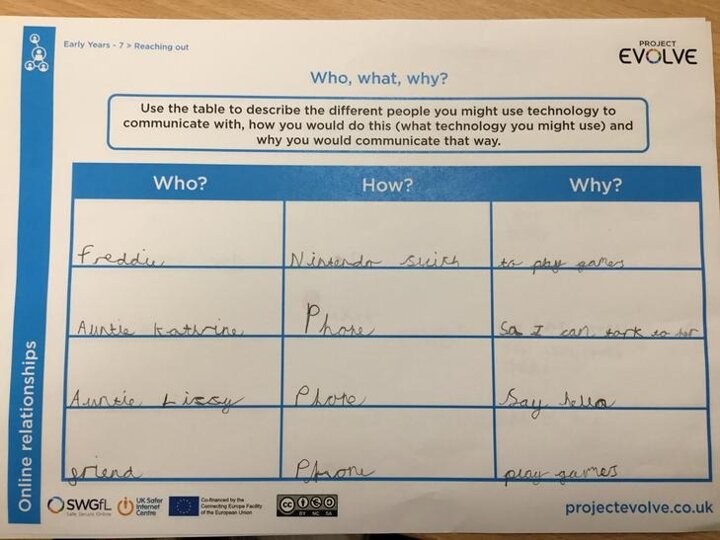 Early Years - 7 > Reaching out
PROJECT
EVOLVE
Who, what, why?
Use the table to describe the different people you might use technology to
communicate with, how you would do this (what technology you might use) and
why you would communicate that way.
Who? How? Why?
Freddie Nintendo swith to play games
Auntie Kathrine Phone So I can tork to her
Auntie Lissy Phone Say hello
friend Phone play games
Online relationships
SWGfL
Safe Secure Online
UK Safer
Internet
Centre
Co-financed by the
Connecting Europe Facility
of the European Union
CC BY NC SA
projectevolve.co.uk